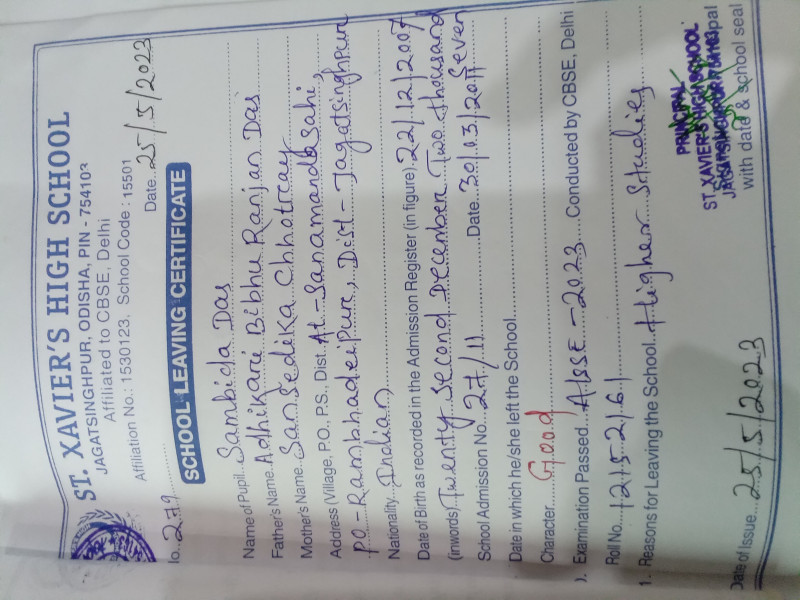 ST. XAVIER'S HIGH SCHOOL
JAGATSINGHPUR, ODISHA, PIN - 754103
Affiliated to CBSE, Delhi
Affiliation No. : 1530123, School Code : 15501
lo. 279 Date. 25/5/2023
SCHOOL LEAVING CERTIFICATE
Name of Pupil. Sambida Das
Father's Name. Adhikari Bibhu Ranjan Das
Mother's Name. Sansedika Chhotray
Address (Village, P.O., P.S., Dist. At-Sanamandasahi,
PO-Rambhadeipur, Dist-Jagatsinghpur
Nationality. Indian
Date of Birth as recorded in the Admission Register (in figure) 22/12/2007
(inwords) Twenty Second December Two thousand Seven
School Admission No. 27/11 Date. 30/03/2011
Date in which he/she left the School
Character. Good
). Examination Passed. AISSE-2023 Conducted by CBSE, Delhi
Roll No. 12152161
1. Reasons for Leaving the School. Higher Studies
PRINCIPAL
ST. XAVIER'S HIGH SCHOOL
with date & school seal
Date of Issue. 25/5/2023